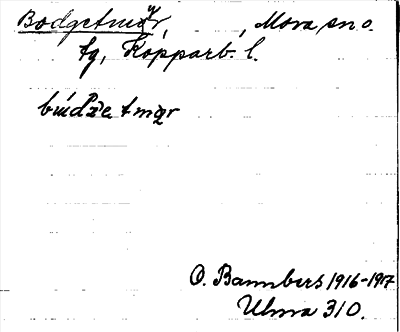 Bodgetmyr, , Mora sn o.
tg, Kopparb. l.
O. Bannbers 1916-1917
Ulma 310.